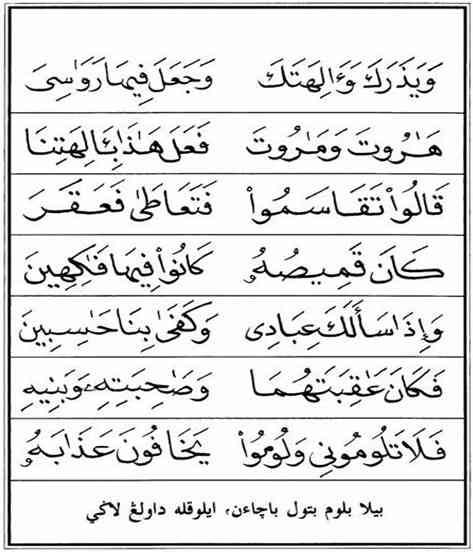 وَيَذَرَكَ وَءَالِهَتَكَ    وَجَعَلَ فِيهَا رَوَٰسِىَ
هَٰرُوتَ وَمَٰرُوتَ    فَعَلَ هَٰذَا بِـَٔالِهَتِنَا
قَالُوا۟ تَقَاسَمُوا۟    فَتَعَاطَىٰ فَعَقَرَ
كَانَ قَمِيصُهُۥ    كَانُوا۟ فِيهَا فَٰكِهِينَ
وَإِذَا سَأَلَكَ عِبَادِى    وَكَفَىٰ بِنَا حَٰسِبِينَ
فَكَانَ عَٰقِبَتَهُمَا    وَصَٰحِبَتِهِۦ وَبَنِيهِ
فَلَا تَلُومُونِى وَلُومُوا۟    يَخَافُونَ عَذَابَهُۥ
بيلا بلوم بتول باچاءن، ايلوقله داولڠ لاڬي